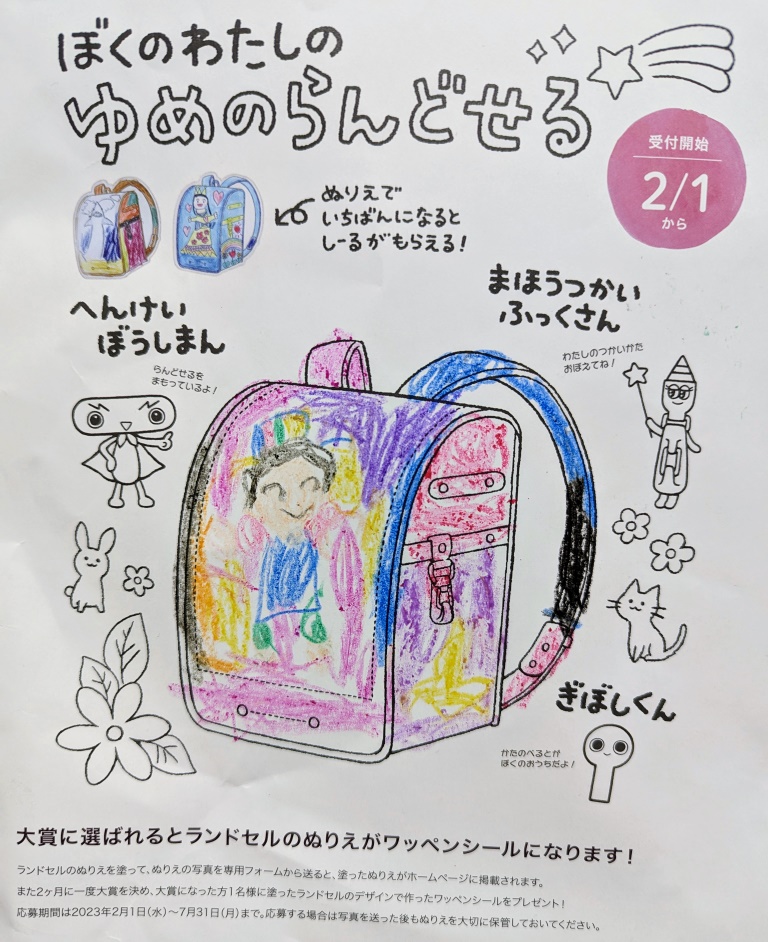 ぼくのわたしの
ゆめのらんどせる
受付開始
2/1
から
ぬりえで
いちばんになると
しーるがもらえる!
へんけい
ぼうしまん
らんどせるを
まもっているよ!
まほうつかい
ふっくさん
わたしのつかいかた
おぼえてね!
ぎぼしくん
かたのべるとが
ぼくのおうちだよ!
大賞に選ばれるとランドセルのぬりえがワッペンシールになります!
ランドセルのぬりえを塗って、ぬりえの写真を専用フォームから送ると、塗ったぬりえがホームページに掲載されます。
また2ヶ月に一度大賞を決め、大賞になった方1名様に塗ったランドセルのデザインで作ったワッペンシールをプレゼント!
応募期間は2023年2月1日(水)〜7月31日(月)まで。応募する場合は写真を送った後もぬりえを大切に保管しておいてください。